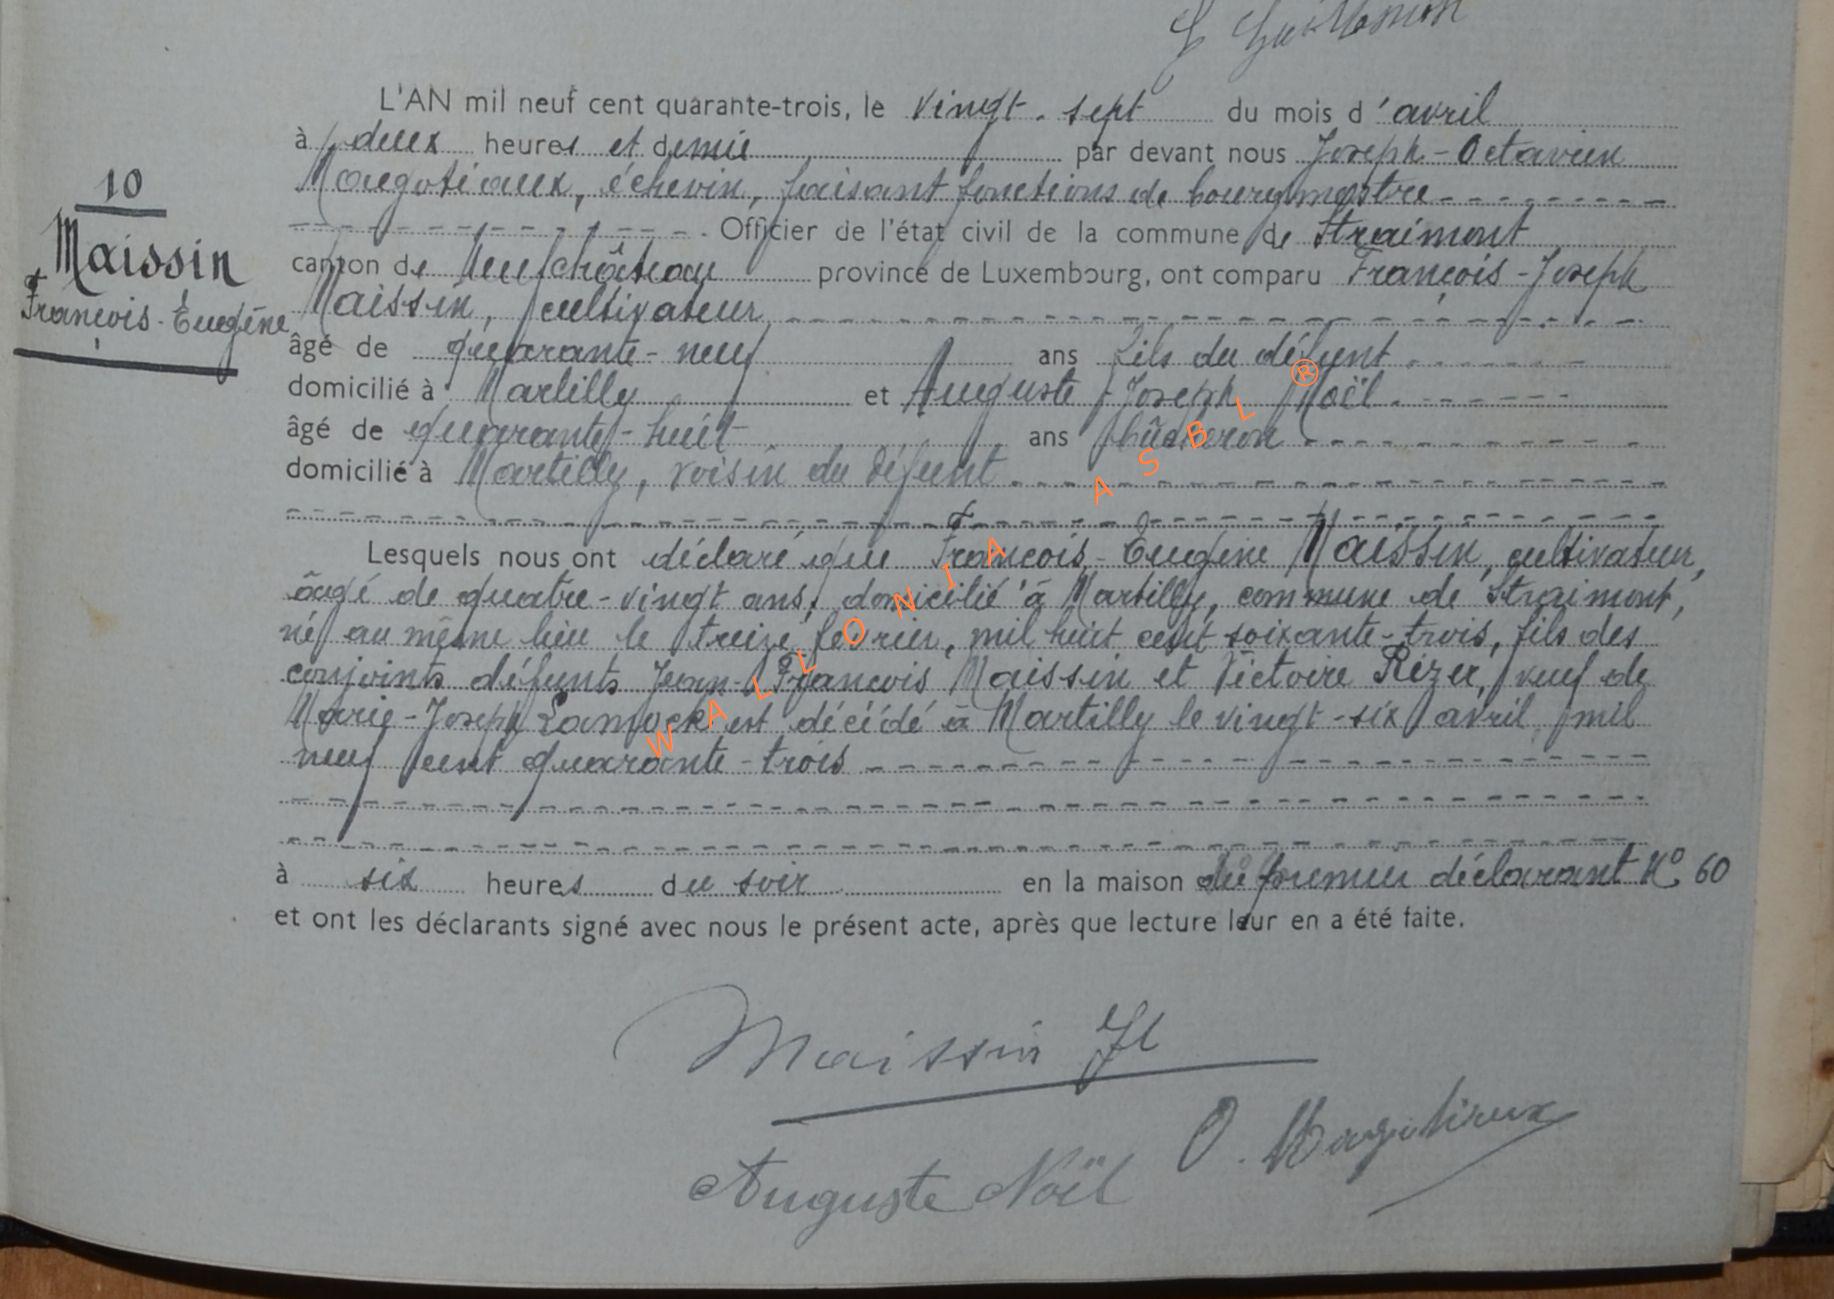 L'AN mil neuf cent quarante-trois, le vingt-sept du mois d'avril
à deux heures et demie par devant nous Joseph-Octavien
Maugotiaux, échevin, faisant fonctions de bourgmestre
Officier de l'état civil de la commune de Straimont
10
Maissin
François-Eugène
canton de Neufchâteau province de Luxembourg, ont comparu François-Joseph
Maissin, cultivateur
âgé de quarante-neuf ans fils du défunt
domicilié à Martilly et Auguste Joseph Noël
âgé de quarante-huit ans bûcheron
domicilié à Martilly, voisin du défunt
Lesquels nous ont déclaré que François-Eugène Maissin, cultivateur,
âgé de quatre-vingt ans, domicilié à Martilly, commune de Straimont,
né au même lieu le treize février, mil huit cent soixante-trois, fils des
conjoints défunts Jean-François Maissin et Victoire Rézer, veuf de
Marie-Joseph est décédé à Martilly le vingt-six avril mil
neuf cent quarante-trois
à six heures du soir en la maison du premier déclarant N° 60
et ont les déclarants signé avec nous le présent acte, après que lecture leur en a été faite.
Maissin FJ
O. Maugotiaux
Auguste Noël
WALLONIA ASBL ®